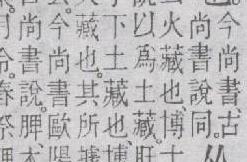 今尚書。古
尚書說同。
火藏也。博士
以爲土藏。
下土藏也。博
藏也。其所據
今尚書歐陽
尚書說。脾木
月令。春祭